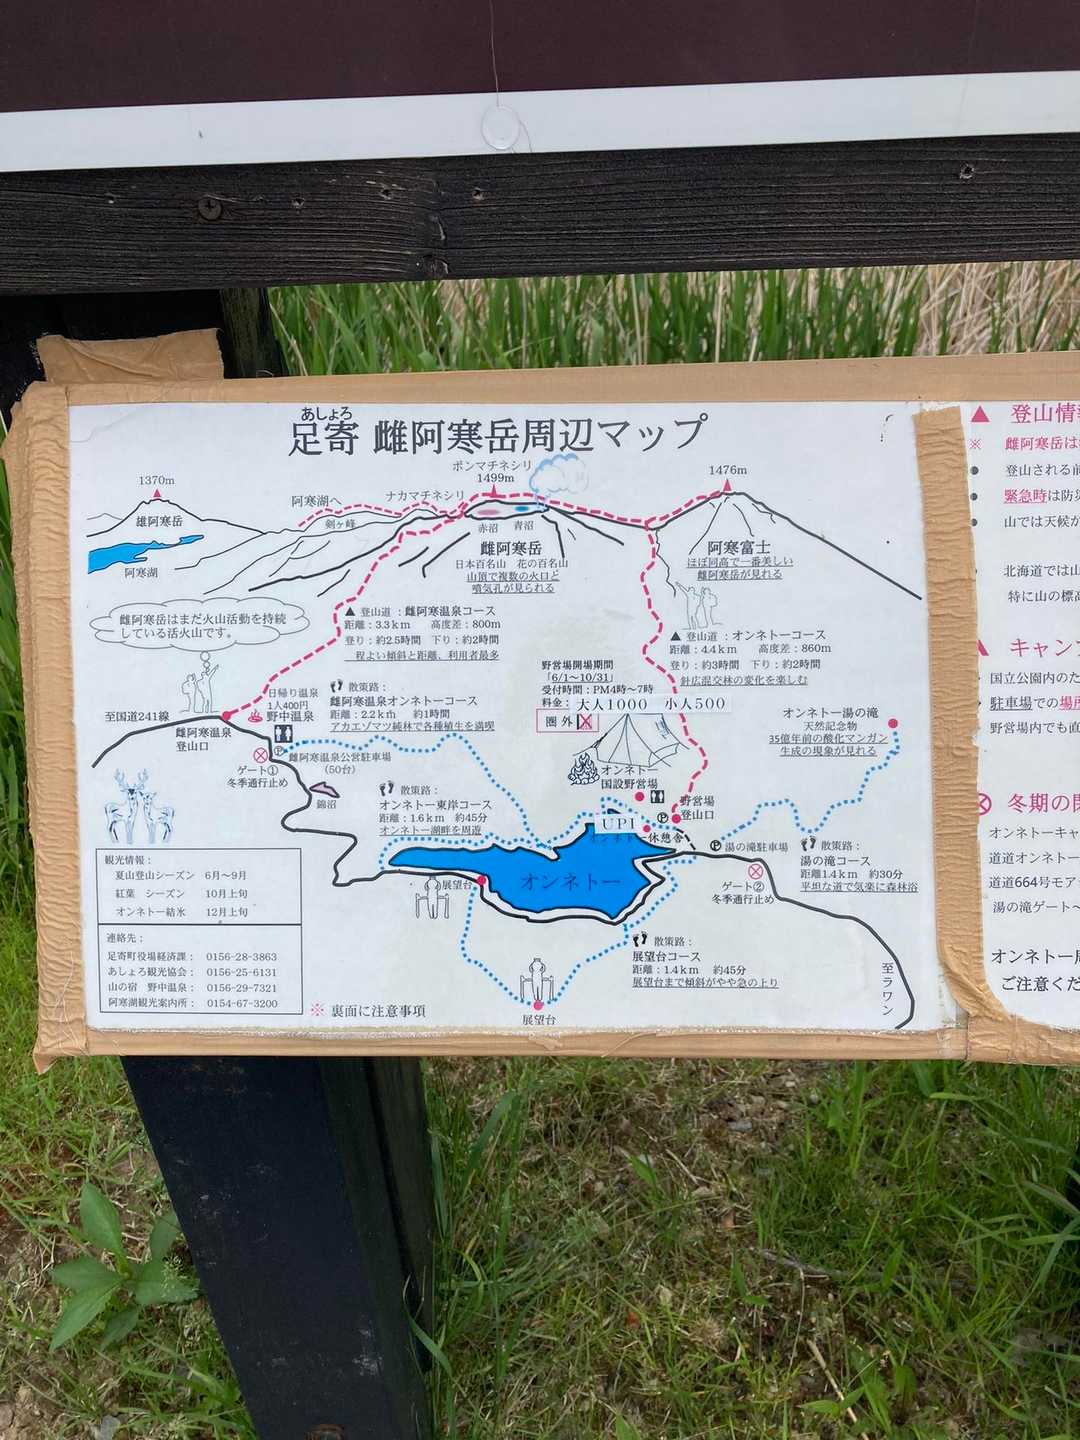 あしょろ
足寄 雌阿寒岳周辺マップ
1370m
雄阿寒岳
阿寒湖
阿寒湖へ
剣ヶ峰
ナカマチネシリ
ポンマチネシリ
1499m
赤沼 青沼
雌阿寒岳
日本百名山 花の百名山
山頂で複数の火口と
噴気孔が見られる
1476m
阿寒富士
ほぼ同高で一番美しい
雌阿寒岳が見れる
雌阿寒岳はまだ火山活動を持続
している活火山です。
▲ 登山道：雌阿寒温泉コース
距離：3.3km 高度差：800m
登り：約2.5時間 下り：約2時間
程よい傾斜と距離、利用者最多
▲ 登山道：オンネトーコース
距離：4.4km 高度差：860m
登り：約3時間 下り：約2時間
針広混交林の変化を楽しむ
野営場開場期間
「6/1～10/31」
受付時間：PM4時～7時
料金：大人1000 小人500
圏外
オンネトー
国設野営場
日帰り温泉
1人400円
野中温泉
至国道241線
雌阿寒温泉
登山口
ゲート①
冬季通行止め
P 雌阿寒温泉公営駐車場
（50台）
錦沼
散策路：
雌阿寒温泉オンネトーコース
距離：2.2km 約1時間
アカエゾマツ純林で各種植生を満喫
散策路：
オンネトー東岸コース
距離：1.6km 約45分
オンネトー湖畔を周遊
オンネトー湯の滝
天然記念物
35億年前の酸化マンガン
生成の現象が見れる
野営場
登山口
P
UPI
オンネトー休憩舎
オンネトー
展望台
P 湯の滝駐車場
ゲート②
冬季通行止め
散策路：
湯の滝コース
距離1.4km 約30分
平坦な道で気楽に森林浴
散策路：
展望台コース
距離：1.4km 約45分
展望台まで傾斜がやや急の上り
展望台
至ラワン
観光情報：
夏山登山シーズン 6月～9月
紅葉 シーズン 10月上旬
オンネトー結氷 12月上旬
連絡先：
足寄町役場経済課： 0156-28-3863
あしょろ観光協会： 0156-25-6131
山の宿 野中温泉： 0156-29-7321
阿寒湖観光案内所： 0154-67-3200
※ 裏面に注意事項
▲ 登山情
※ 雌阿寒岳は
● 登山される前
● 緊急時は防災
● 山では天候が
● 北海道では山
特に山の標高
▲ キャン
● 国立公園内のた
● 駐車場での場所
● 野営場内でも直
冬期の閉
オンネトーキャ
道道オンネトー
道道664号モア
湯の滝ゲート～
オンネトー周
ご注意くだ